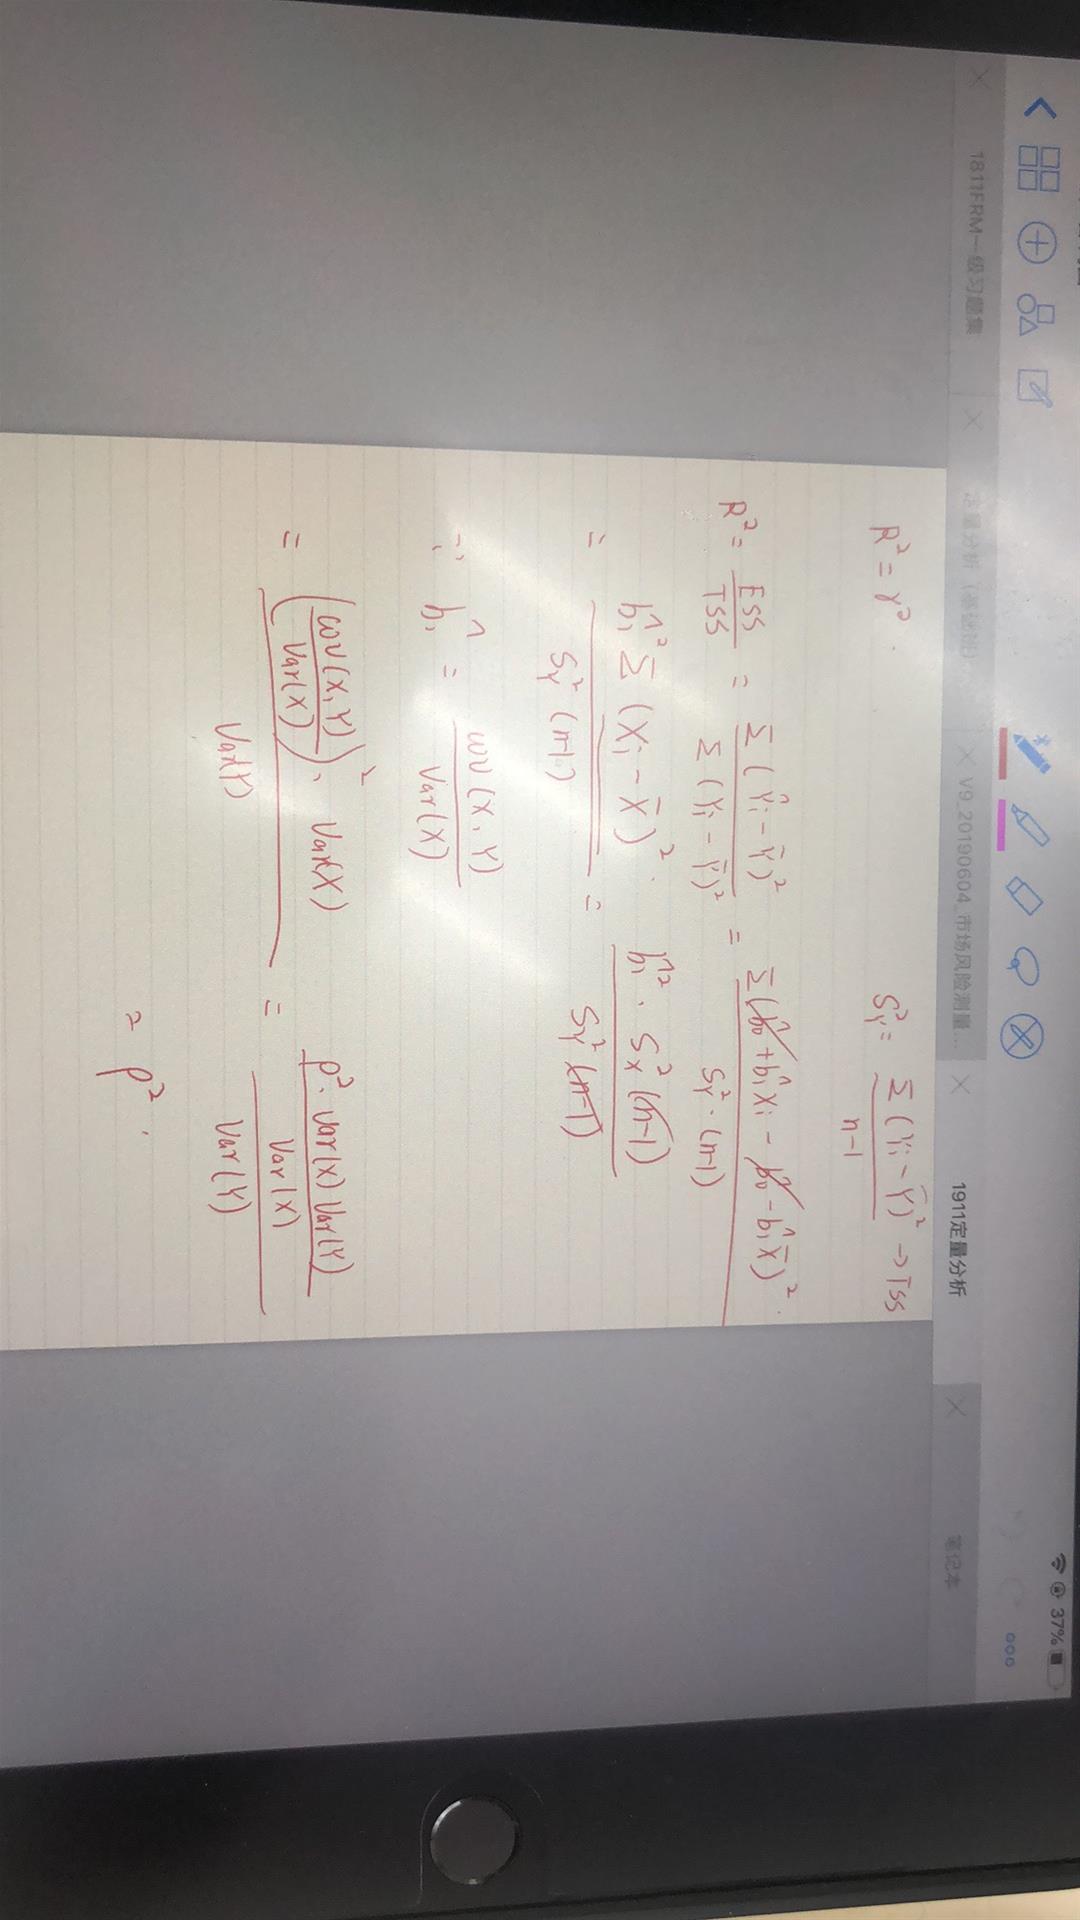 37%
1811FRM一级习题集
定量分析（基础班）
V9_20190604_市场风险测量...
1911定量分析
笔记本
R² = γ²
S_Y² = Σ(Yi - Ȳ)² / n-1 → TSS
R² = ESS / TSS = Σ(Ŷi - Ȳ)² / Σ(Yi - Ȳ)² = Σ(b̂0 + b̂1Xi - b̂0 - b̂1X̄)² / S_Y²·(n-1)
= b̂1² Σ(Xi - X̄)² / S_Y²(n-1) = b̂1²·S_X²(n-1) / S_Y²(n-1)
∵ b̂1 = cov(X,Y) / Var(X)
= (cov(X,Y) / Var(X))²·Var(X) / Var(Y) = ρ²·Var(X)Var(Y) / Var(X) / Var(Y)
= ρ².